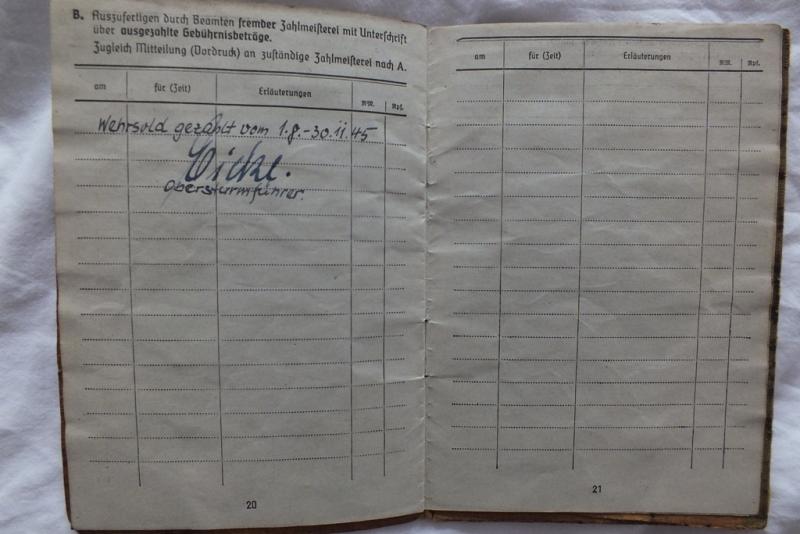 B. Auszufertigen durch Beamten fremder Zahlmeisterei mit Unterschrift
über ausgezahlte Gebührnisbeträge.
Zugleich Mitteilung (Vordruck) an zuständige Zahlmeisterei nach A.
am für (Zeit) Erläuterungen RM. Rpf.
Wehrsold gezahlt vom 1.8.-30.11.45
Obersturmführer.
20
am für (Zeit) Erläuterungen RM. Rpf.
21